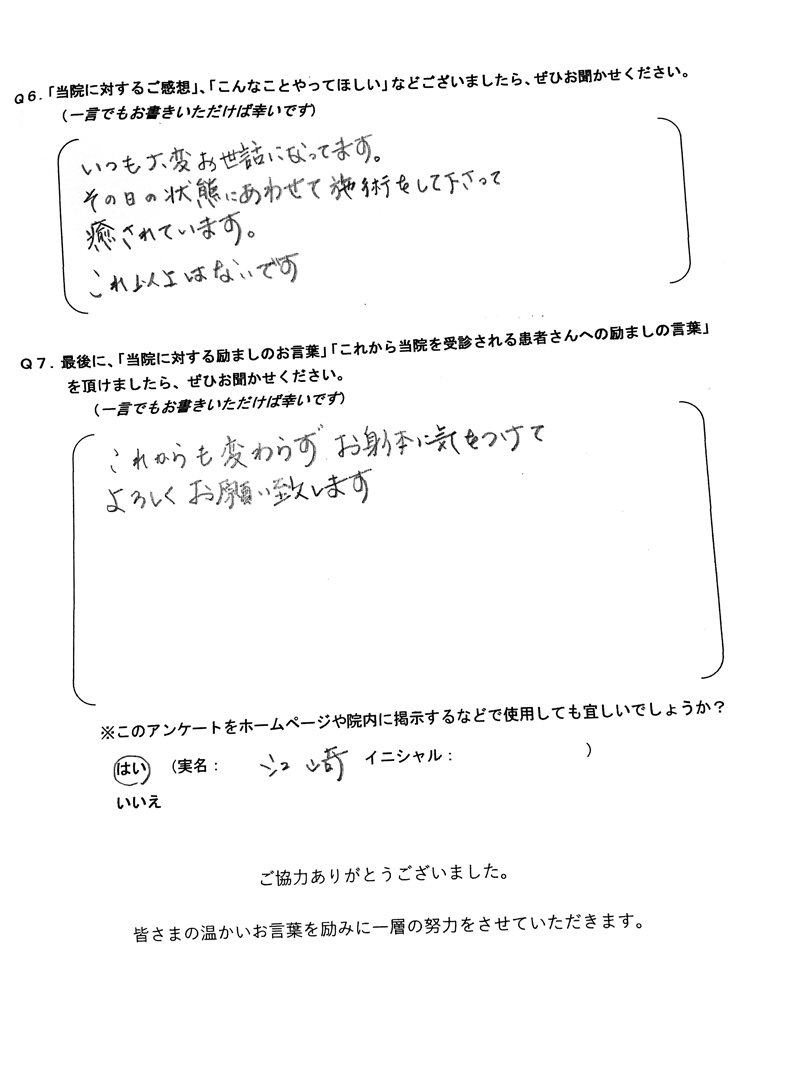 Q6.「当院に対するご感想」、「こんなことやってほしい」などございましたら、ぜひお聞かせください。
(一言でもお書きいただけば幸いです)
いつも大変お世話になってます。
その日の状態にあわせて施術をして下さって
癒されています。
これ以上はないです
Q7.最後に、「当院に対する励ましのお言葉」「これから当院を受診される患者さんへの励ましの言葉」
を頂けましたら、ぜひお聞かせください。
(一言でもお書きいただけば幸いです)
これからも変わらず お身体に気をつけて
よろしく お願い致します
※このアンケートをホームページや院内に掲示するなどで使用しても宜しいでしょうか?
はい (実名: 江崎 イニシャル: )
いいえ
ご協力ありがとうございました。
皆さまの温かいお言葉を励みに一層の努力をさせていただきます。